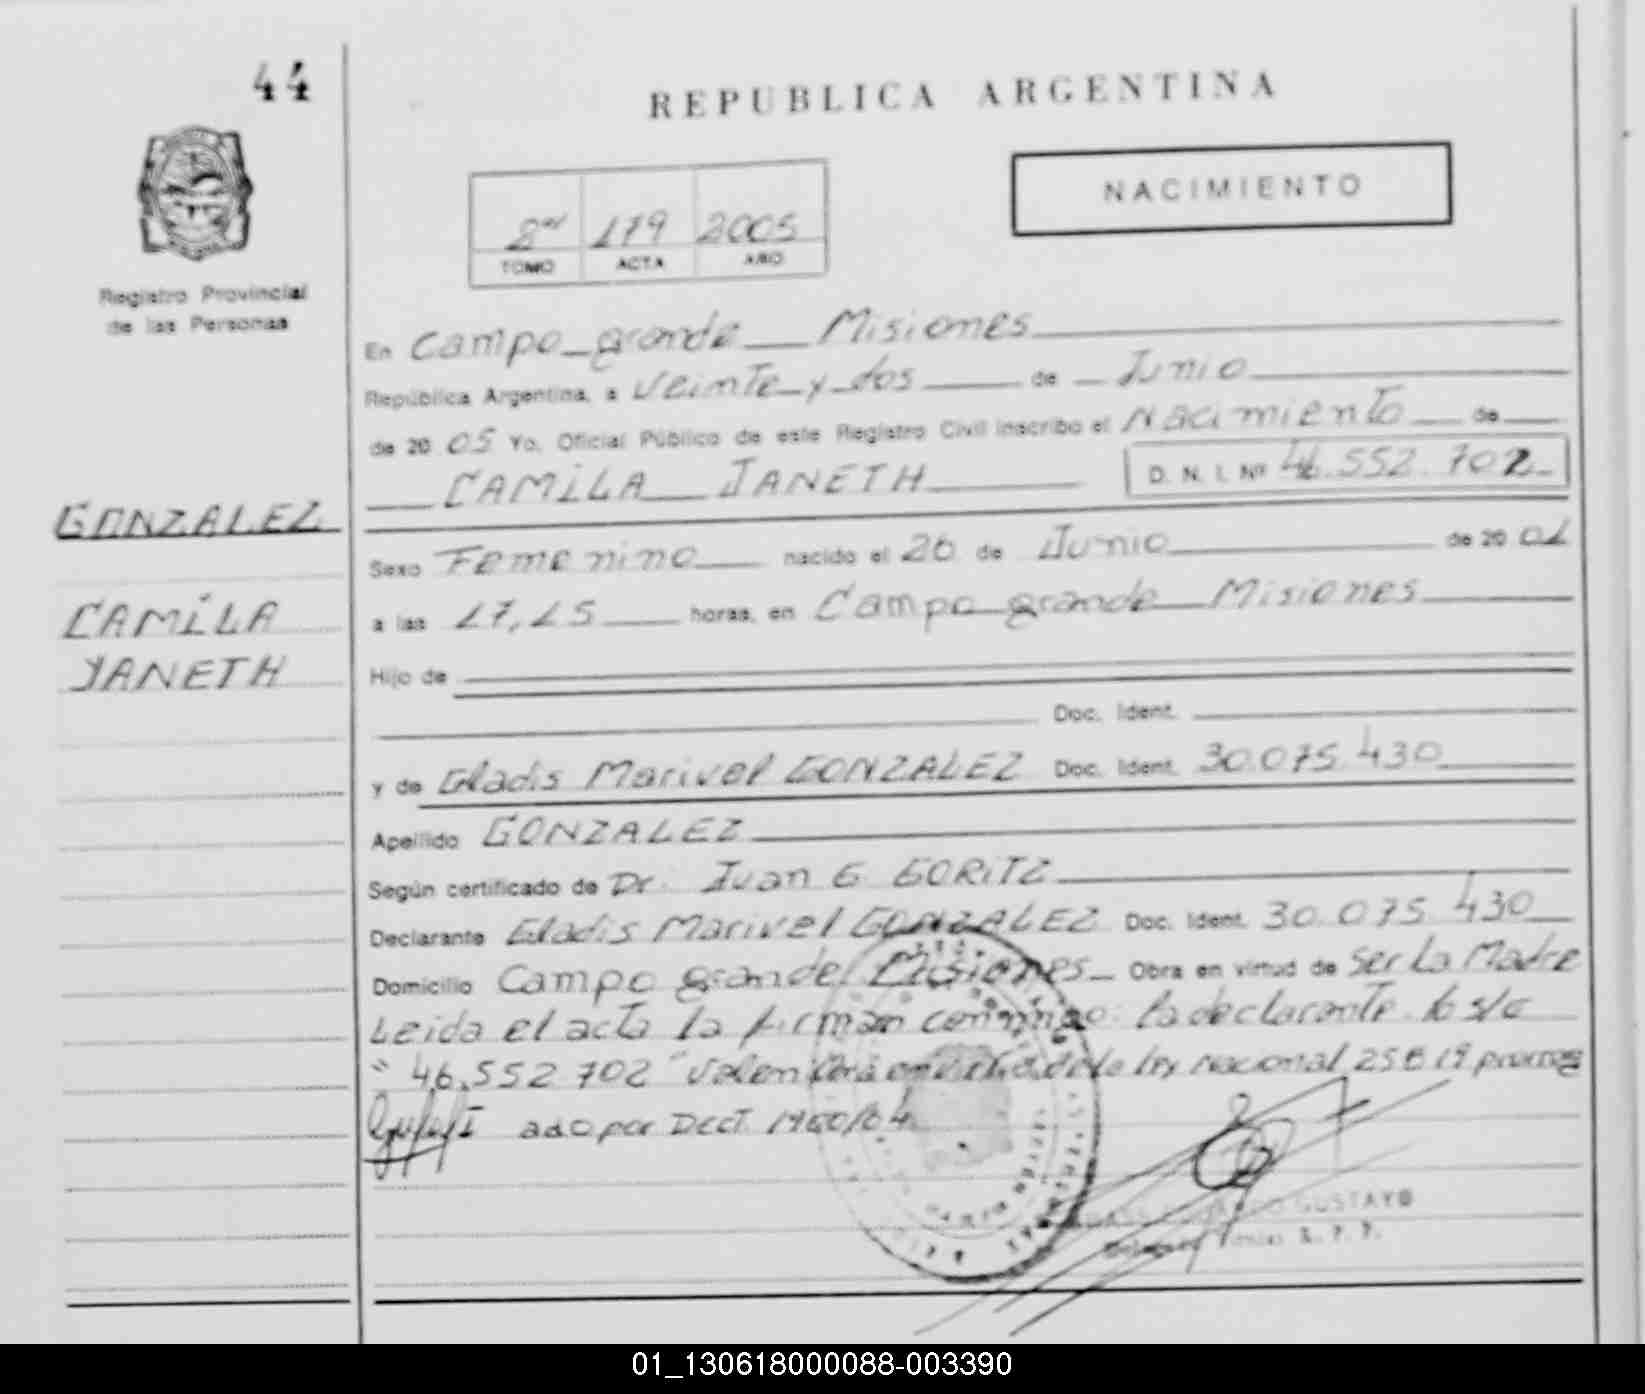 44
REPUBLICA ARGENTINA
NACIMIENTO
2 179 2005
TOMO ACTA AÑO
Registro Provincial
de las Personas
En Campo grande Misiones
República Argentina, a Veinte y dos de Junio
de 2005 Yo, Oficial Público de este Registro Civil inscribo el Nacimiento de
CAMILA JANETH D. N. I. Nº 46.552.702
GONZALEZ
Sexo Femenino nacido el 26 de Junio de 2001
CAMILA
a las 17,15 horas, en Campo grande Misiones
YANETH
Hijo de
Doc. Ident.
y de Gladis Marivel GONZALEZ Doc. Ident. 30.075.430
Apellido GONZALEZ
Según certificado de Dr. Juan G. GORITZ
Declarante Gladis Marivel GONZALEZ Doc. Ident. 30.075.430
Domicilio Campo grande Misiones Obra en virtud de Ser La Madre
Leida el acta la firman conmigo: la declarante.
"46.552.702" Valen ley nacional
ado por Dect.
GUSTAVO
R. P. P.
01_130618000088-003390